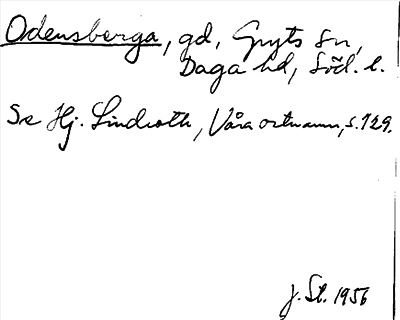 Odensberga, gd, Gryts sn,
Daga hd, Södl. l.
Se Hj. Lindroth, Våra ortnamn, s. 129.
J. St. 1956